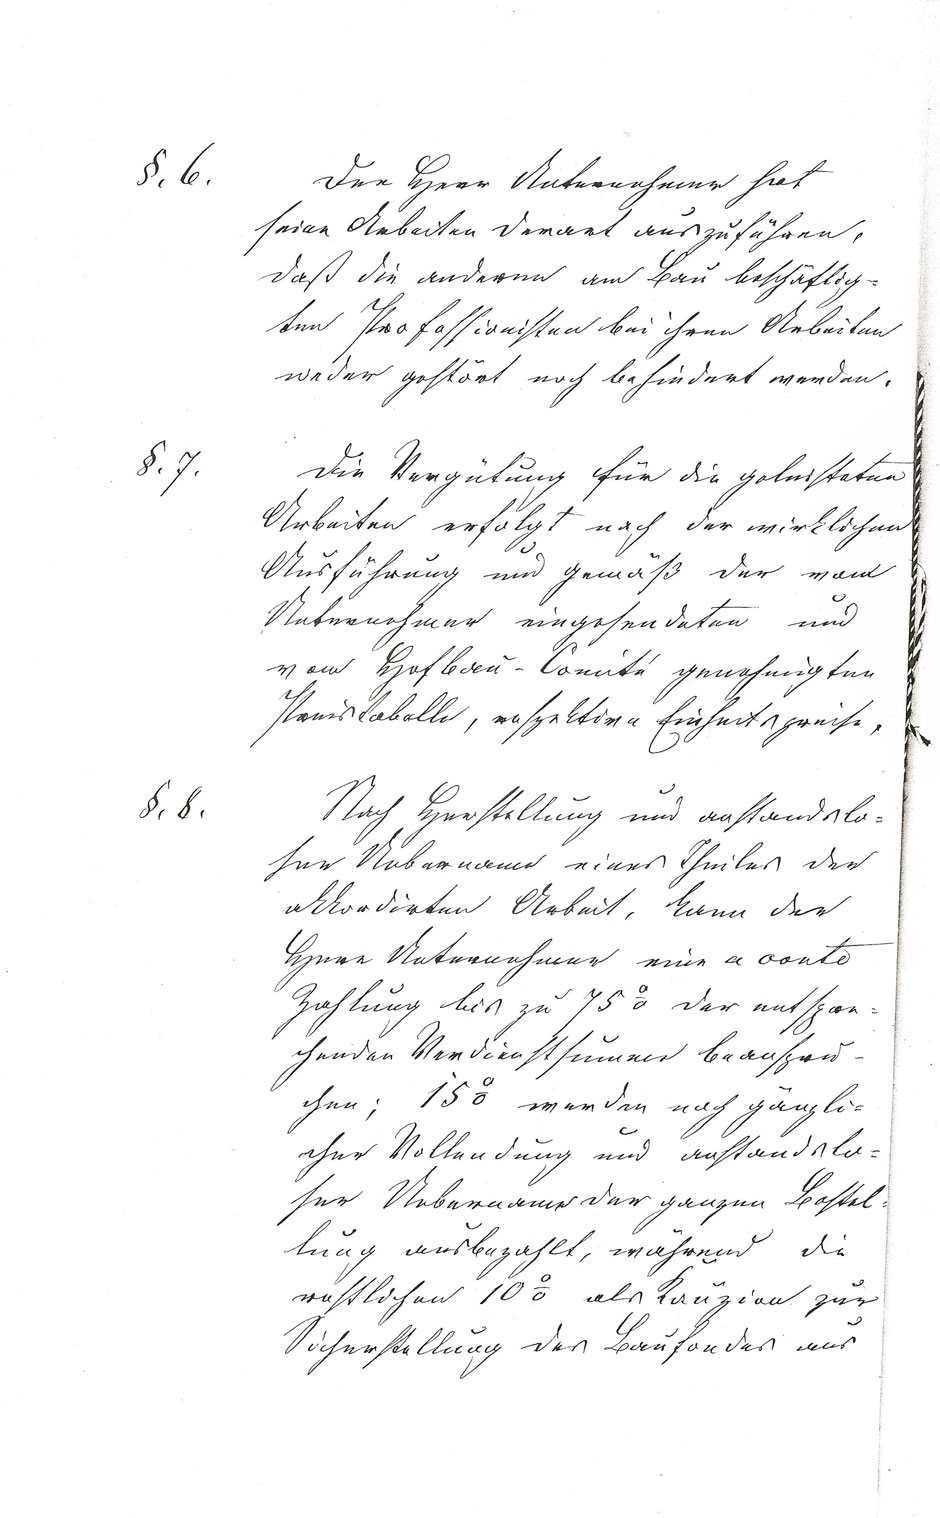 §. 6. Der Herr Unternehmer hat
seine Arbeiten derart auszuführen,
daß die anderen am Bau beschäftig-
ten Professionisten bei ihren Arbeiten
weder gestört noch behindert werden.
§. 7. Die Vergütung für die geleisteten
Arbeiten erfolgt nach der wirklichen
Ausführung und gemäß der vom
Unternehmer eingesendeten und
vom Hofbau-Comité genehmigten
Preistabelle, respektive Einheitspreise.
§. 8. Nach Herstellung und anstandslo-
ser Uebername eines Theiles der
akkordirten Arbeit, kann der
Herr Unternehmer eine a conto
Zahlung bis zu 75 % der entspre-
chenden Verdienstsumme beanspru-
chen; 15 % werden nach gänzli-
cher Vollendung und anstandslo-
ser Uebername der ganzen Bestel-
lung ausbezahlt, während die
restlichen 10 % als Kauzion zur
Sicherstellung des Baufondes aus